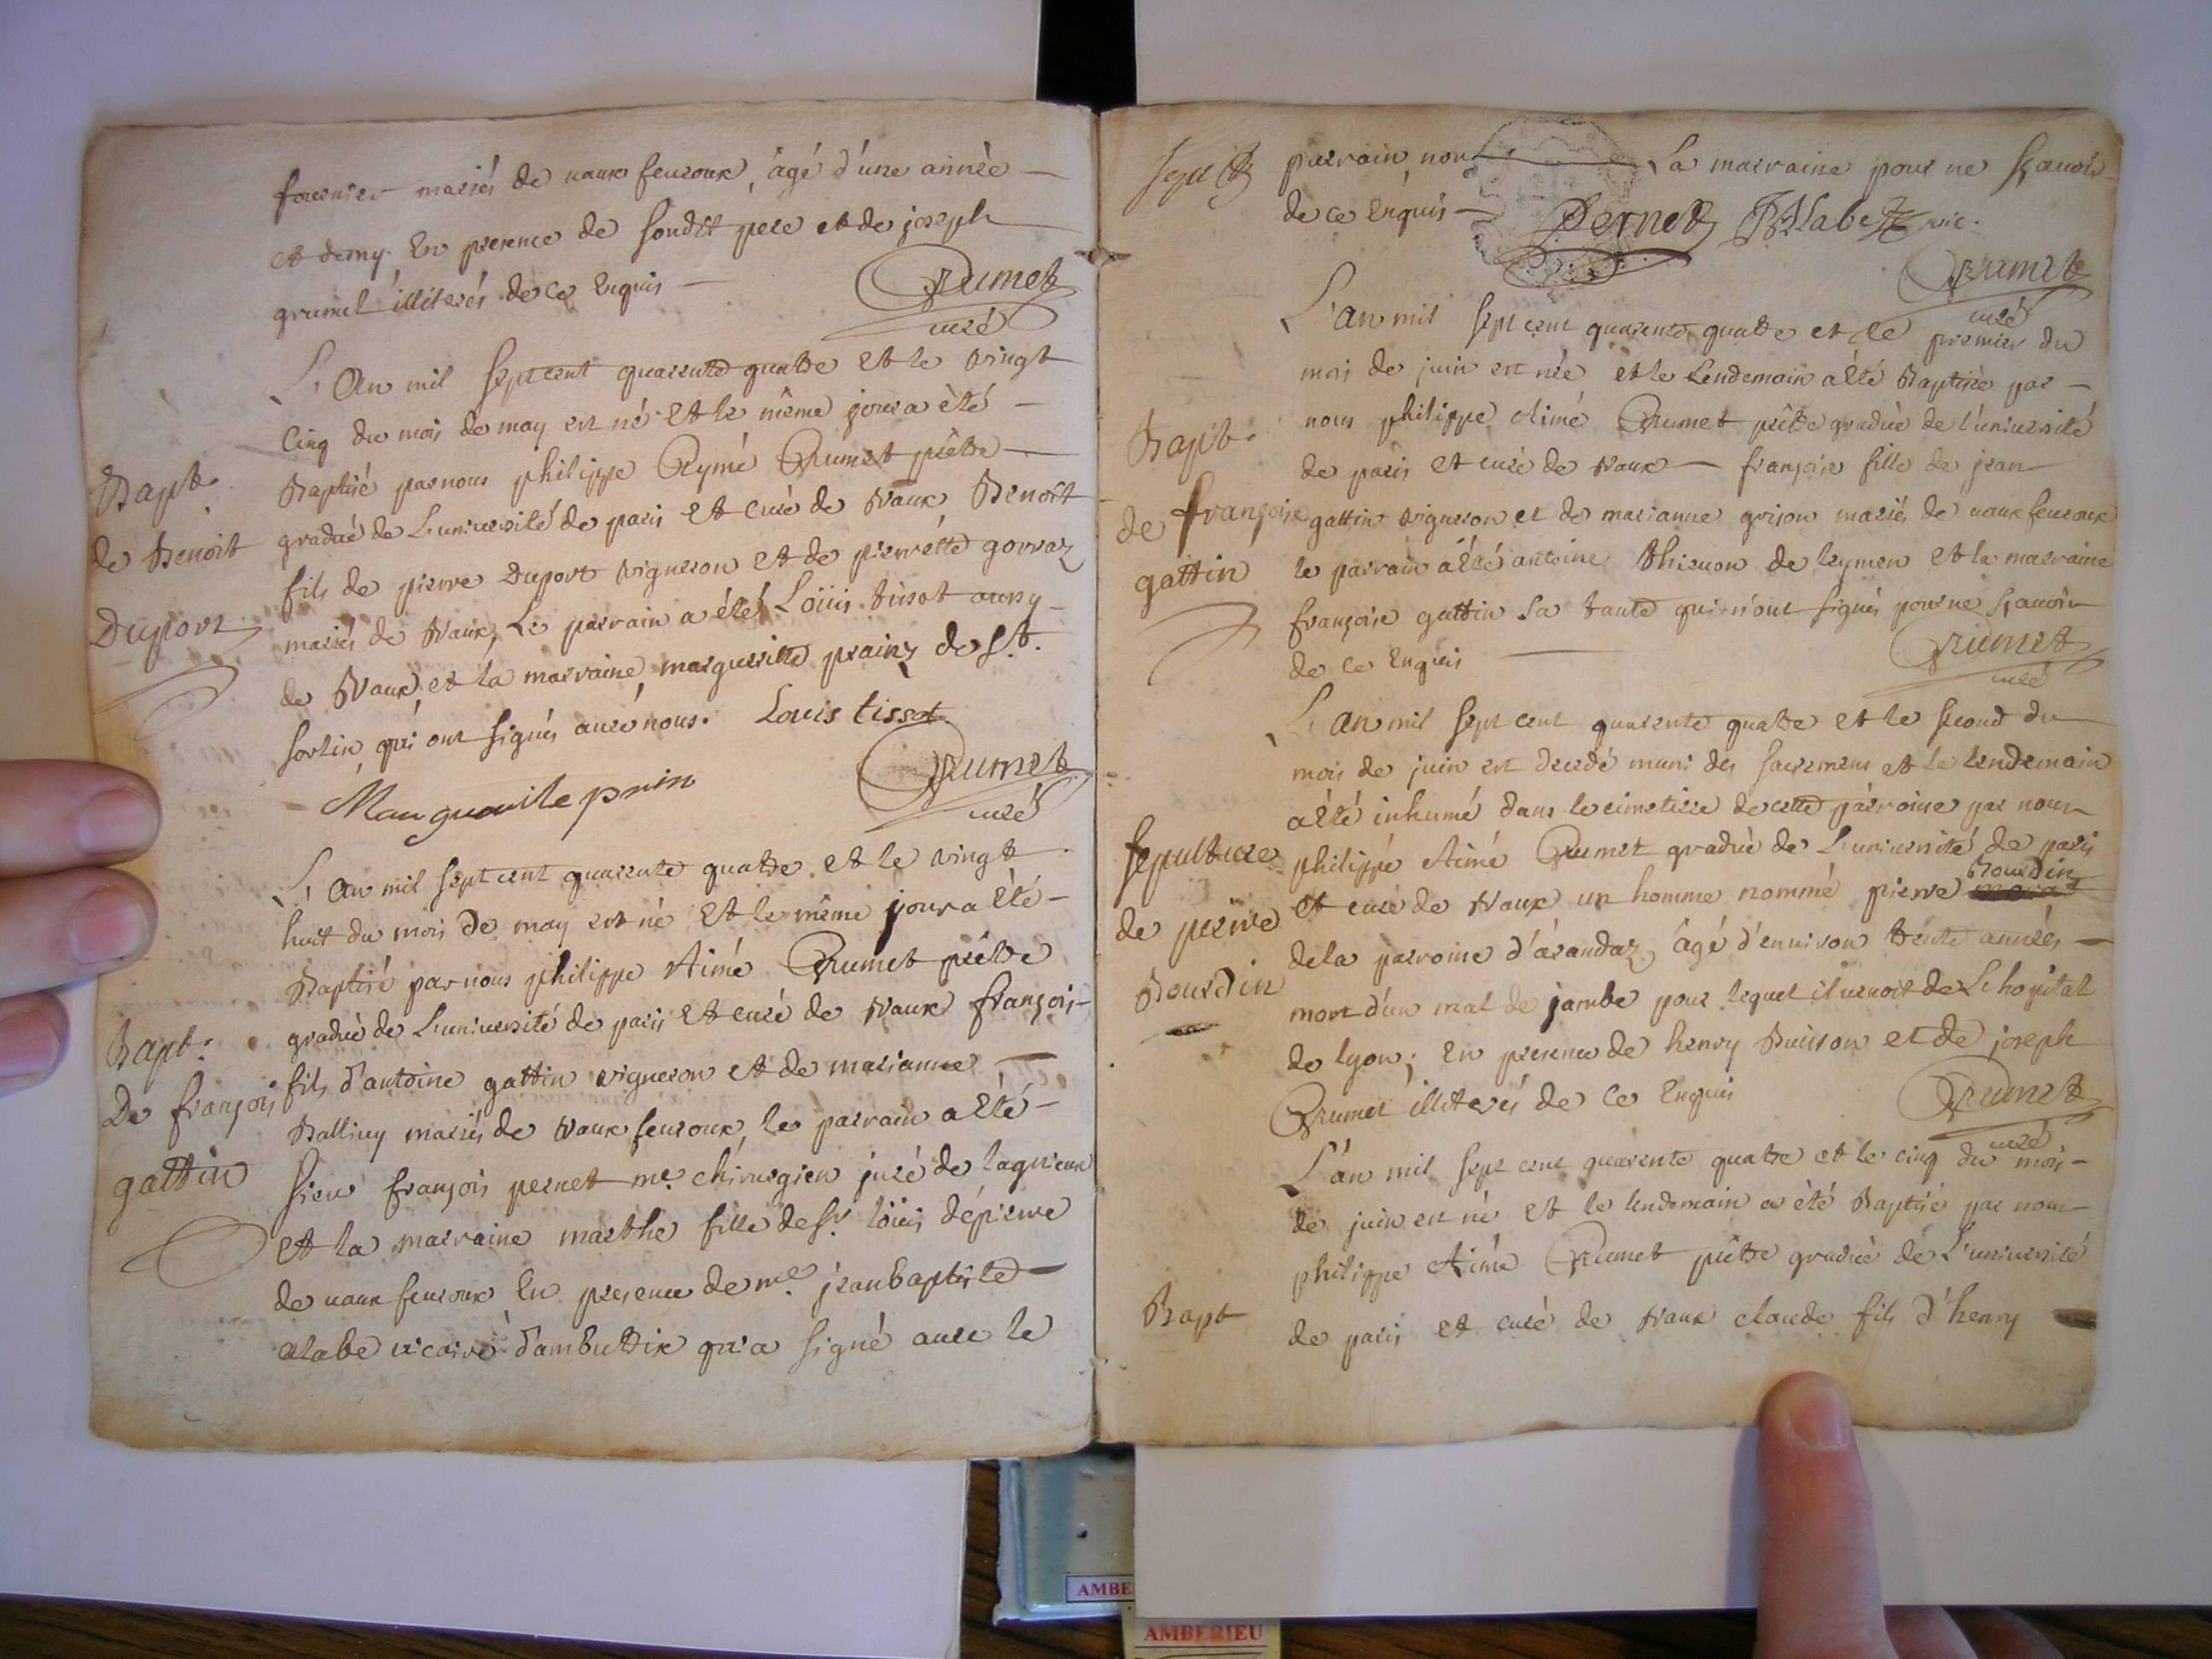 fournier mariés de vaux fevroux, âgé d'une année
et demy. En presence de sondit pere et de joseph
grumel illiterés de ce Enquis
Rumet
curé
L'An mil sept cent quarente quatre et le vingt
Cinq du mois de may est né et le même jour a èté
Bapt. Baptisé par nous philippe Aymé Rumet prêtre
gradué de L'université de paris Et Curé de Vaux Benoît
de Benoit
fils de pierre Duport vigneron et de pierrette gorraz
Duport
mariés de Vaux, Le parrain a été Loüis tissot aussy
de Vaux et la marraine margueritte prainz de St.
sorlin, qui ont signés avec nous. Louis tissot
Rumet
curé
L'An mil sept cent quarente quatre et le vingt
huit du mois de may est né Et le même jour a Eté
Baptisé par nous philippe Aimé Rumet prêtre
gradué de L'université de paris Et curé de Vaux françois
Bapt.
De françois fils d'antoine gattin vigneron et de marianne
Balliuy mariés de Vaux fevroux, le parrain a Eté
gattin
sieur françois pernet me. chirurgien juré de lagnieux
Et la marraine marthe fille de sr loüis dépierre
de vaux fevroux En presence de me. jean baptiste
alabe vicaire d'ambutrix qui a signé avec le
parrain, non La marraine pour ne sçavoir
de ce Enquis Pernet vic.
Rumet
curé
L'An mil sept cent quarente quatre et le premier du
mois de juin est née et le Lendemain a Eté Baptisée par
Bapt. nous philippe Aimé Rumet prêtre gradué de l'université
de paris et curé de Vaux françoise fille de jean
de françoise gattin vigneron et de marianne grison mariés de vaux fevroux
gattin le parrain a Eté antoine thievon de leymen et la marraine
françoise gattin sa tante qui n'ont signés pour ne sçavoir
de ce Enquis
Rumet
curé
L'an mil sept cent quarente quatre et le second du
mois de juin est decedé muni des sacremens et le lendemain
a Eté inhumé dans le cimetiere de cette parroisse par nous
sepulture philippe Aimé Rumet gradué de L'université de paris
Bourdin
de pierre et curé de Vaux un homme nommé pierre
Bourdin de la parroisse d'arandaz, âgé d'environ trente années
mort d'un mal de jambe pour lequel il venoit de L'hopital
de lyon; En presence de henry Buisson et de joseph
Rumet illiterés de Ce Enquis
Rumet
curé
L'an mil sept cent quarente quatre et le cinq du mois
de juin est né et le lendemain a èté Baptisé par nous
philippe Aimé Rumet prêtre gradué de L'université
Bapt de paris et curé de Vaux claude fils d'henry
AMBE
AMBERIEU